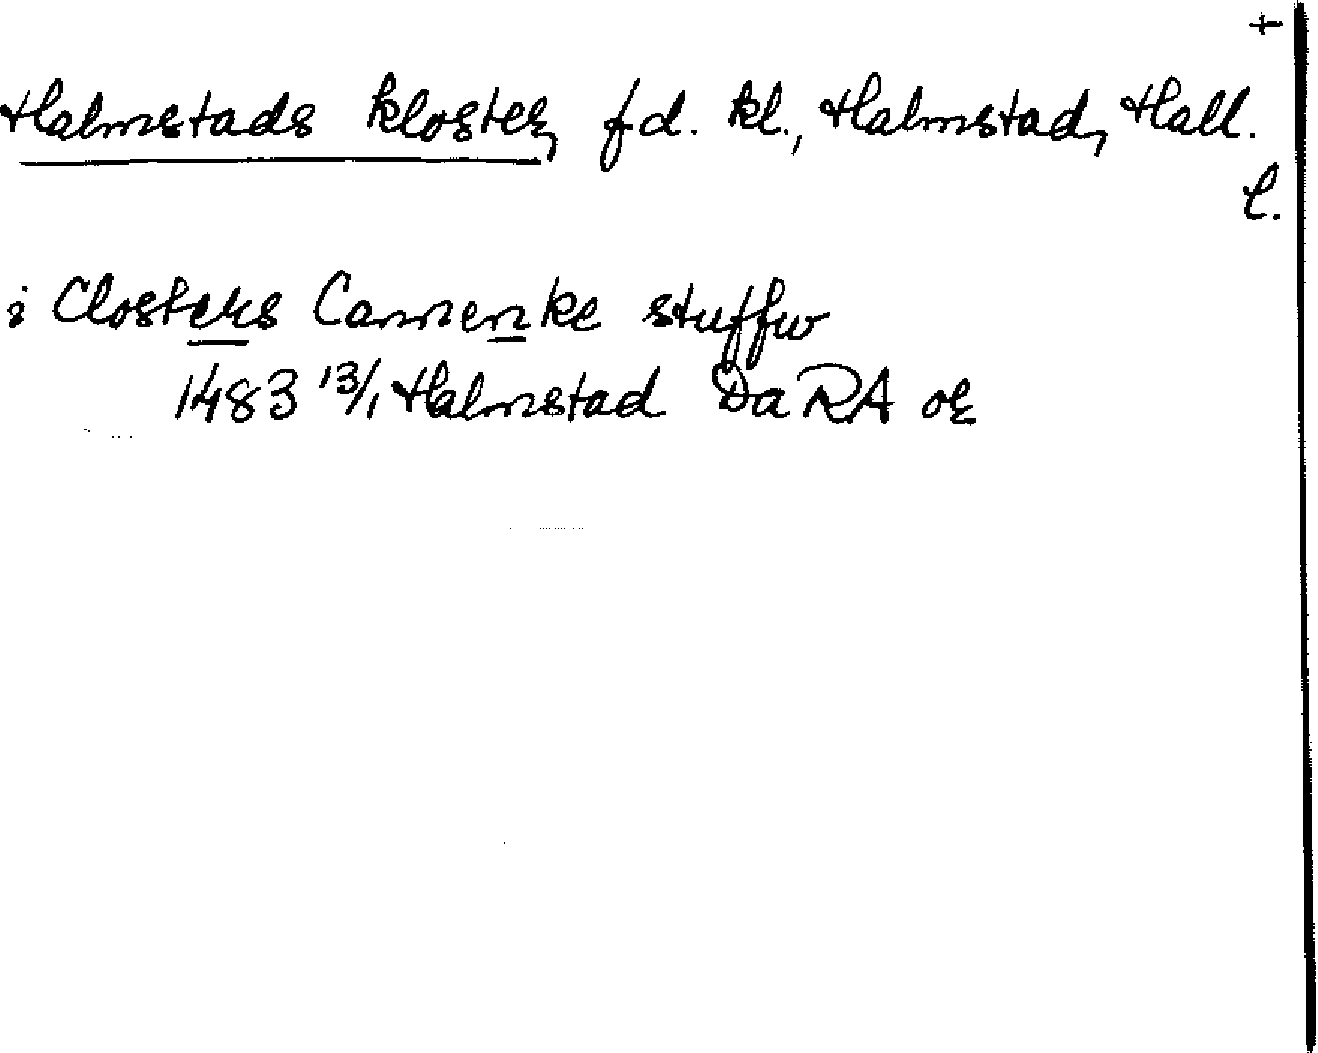 +
Halmstads kloster, f d. kl., Halmstad, Hall.
l.
i Closters Camenke stuffw
1483 13/1 Halmstad DaRA or